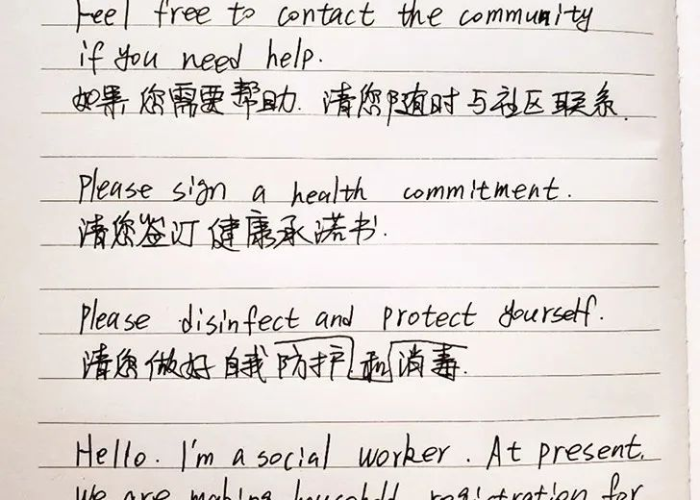 Feel free to contact the community
if you need help.
如果您需要帮助.请您随时与社区联系.
Please sign a health commitment.
请您签订健康承诺书.
Please disinfect and protect yourself.
请您做好自我防护和消毒.
Hello. I'm a social worker. At present,
we are making household registration for